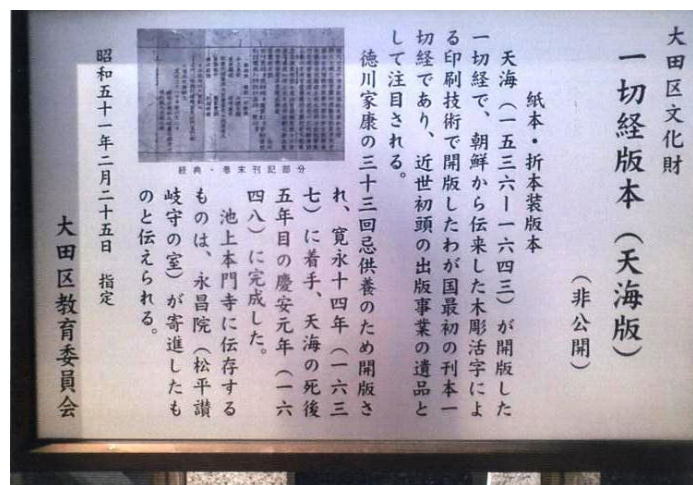 大田区文化財
一切経版本（天海版）
（非公開）
紙本・折本装版本
天海（一五三六ー一六四三）が開版した
一切経で、朝鮮から伝来した木彫活字によ
る印刷技術で開版したわが国最初の刊本一
切経であり、近世初頭の出版事業の遺品と
して注目される。
徳川家康の三十三回忌供養のため開版さ
れ、寛永十四年（一六三
七）に着手、天海の死後
五年目の慶安元年（一六
四八）に完成した。
池上本門寺に伝存する
ものは、永昌院（松平讃
岐守の室）が寄進したも
のと伝えられる。
経典・巻末刊記部分
昭和五十一年二月二十五日　指定
大田区教育委員会